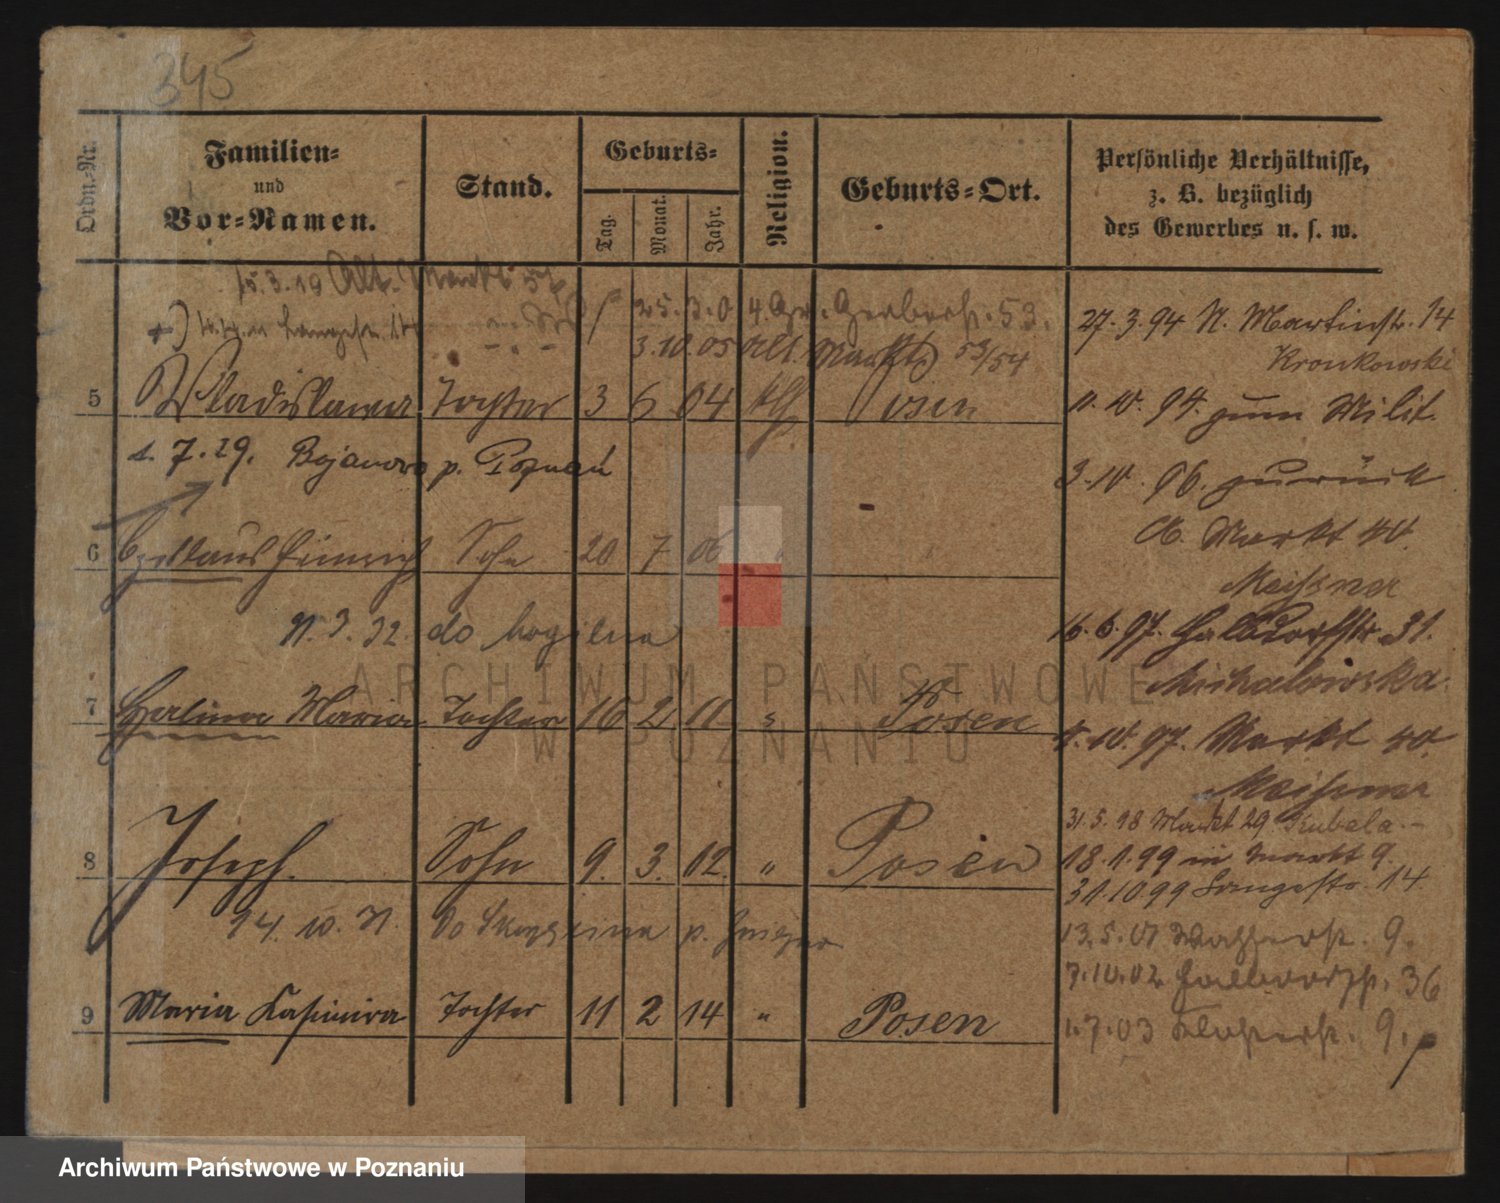 345
Ordn.-Nr.
Familien-
und
Vor-Namen.
Stand.
Geburts-
Tag.
Monat.
Jahr.
Religion.
Geburts-Ort.
Persönliche Verhältnisse,
z. B. bezüglich
des Gewerbes u. s. w.
15.3.10 Alt. Markt 52
25.3.0 4. Gr. Gerberstr. 53.
3.10.05 Alt. Markt 53/54
5 Wladislawa Tochter 3 6 04 kth Posen
1. 7. 29. Bojanowo p. Poznań
6 Czeslaus Heinrich Sohn 20 7 06
11. 3. 32. do Mogilna
7 Halina Maria Tochter 16 2 11 " Posen
8 Joseph. Sohn 9. 3. 02. " Posen
14. 10. 31. do
9 Maria Kasimira Tochter 11 2 14 " Posen
27. 3. 94 N. Martinstr. 14
Kronkowski
11. 10. 94. zum Milit.
3. 10. 96. zurück
Markt 40.
Meißner
16. 6. 97. Halbdorfstr 31.
Michalowska
1. 10. 97. Markt 40.
Meißner
31. 5. 98 Markt 29. Kubala
18. 1. 99 in Markt 9.
31. 10 99 Langestr. 14
13. 5. 01 Wasserstr. 9.
7. 10. 02 Halbdorfstr. 36
1. 7. 03 Klosterstr. 9.
ARCHIWUM PAŃSTWOWE
W POZNANIU
Archiwum Państwowe w Poznaniu